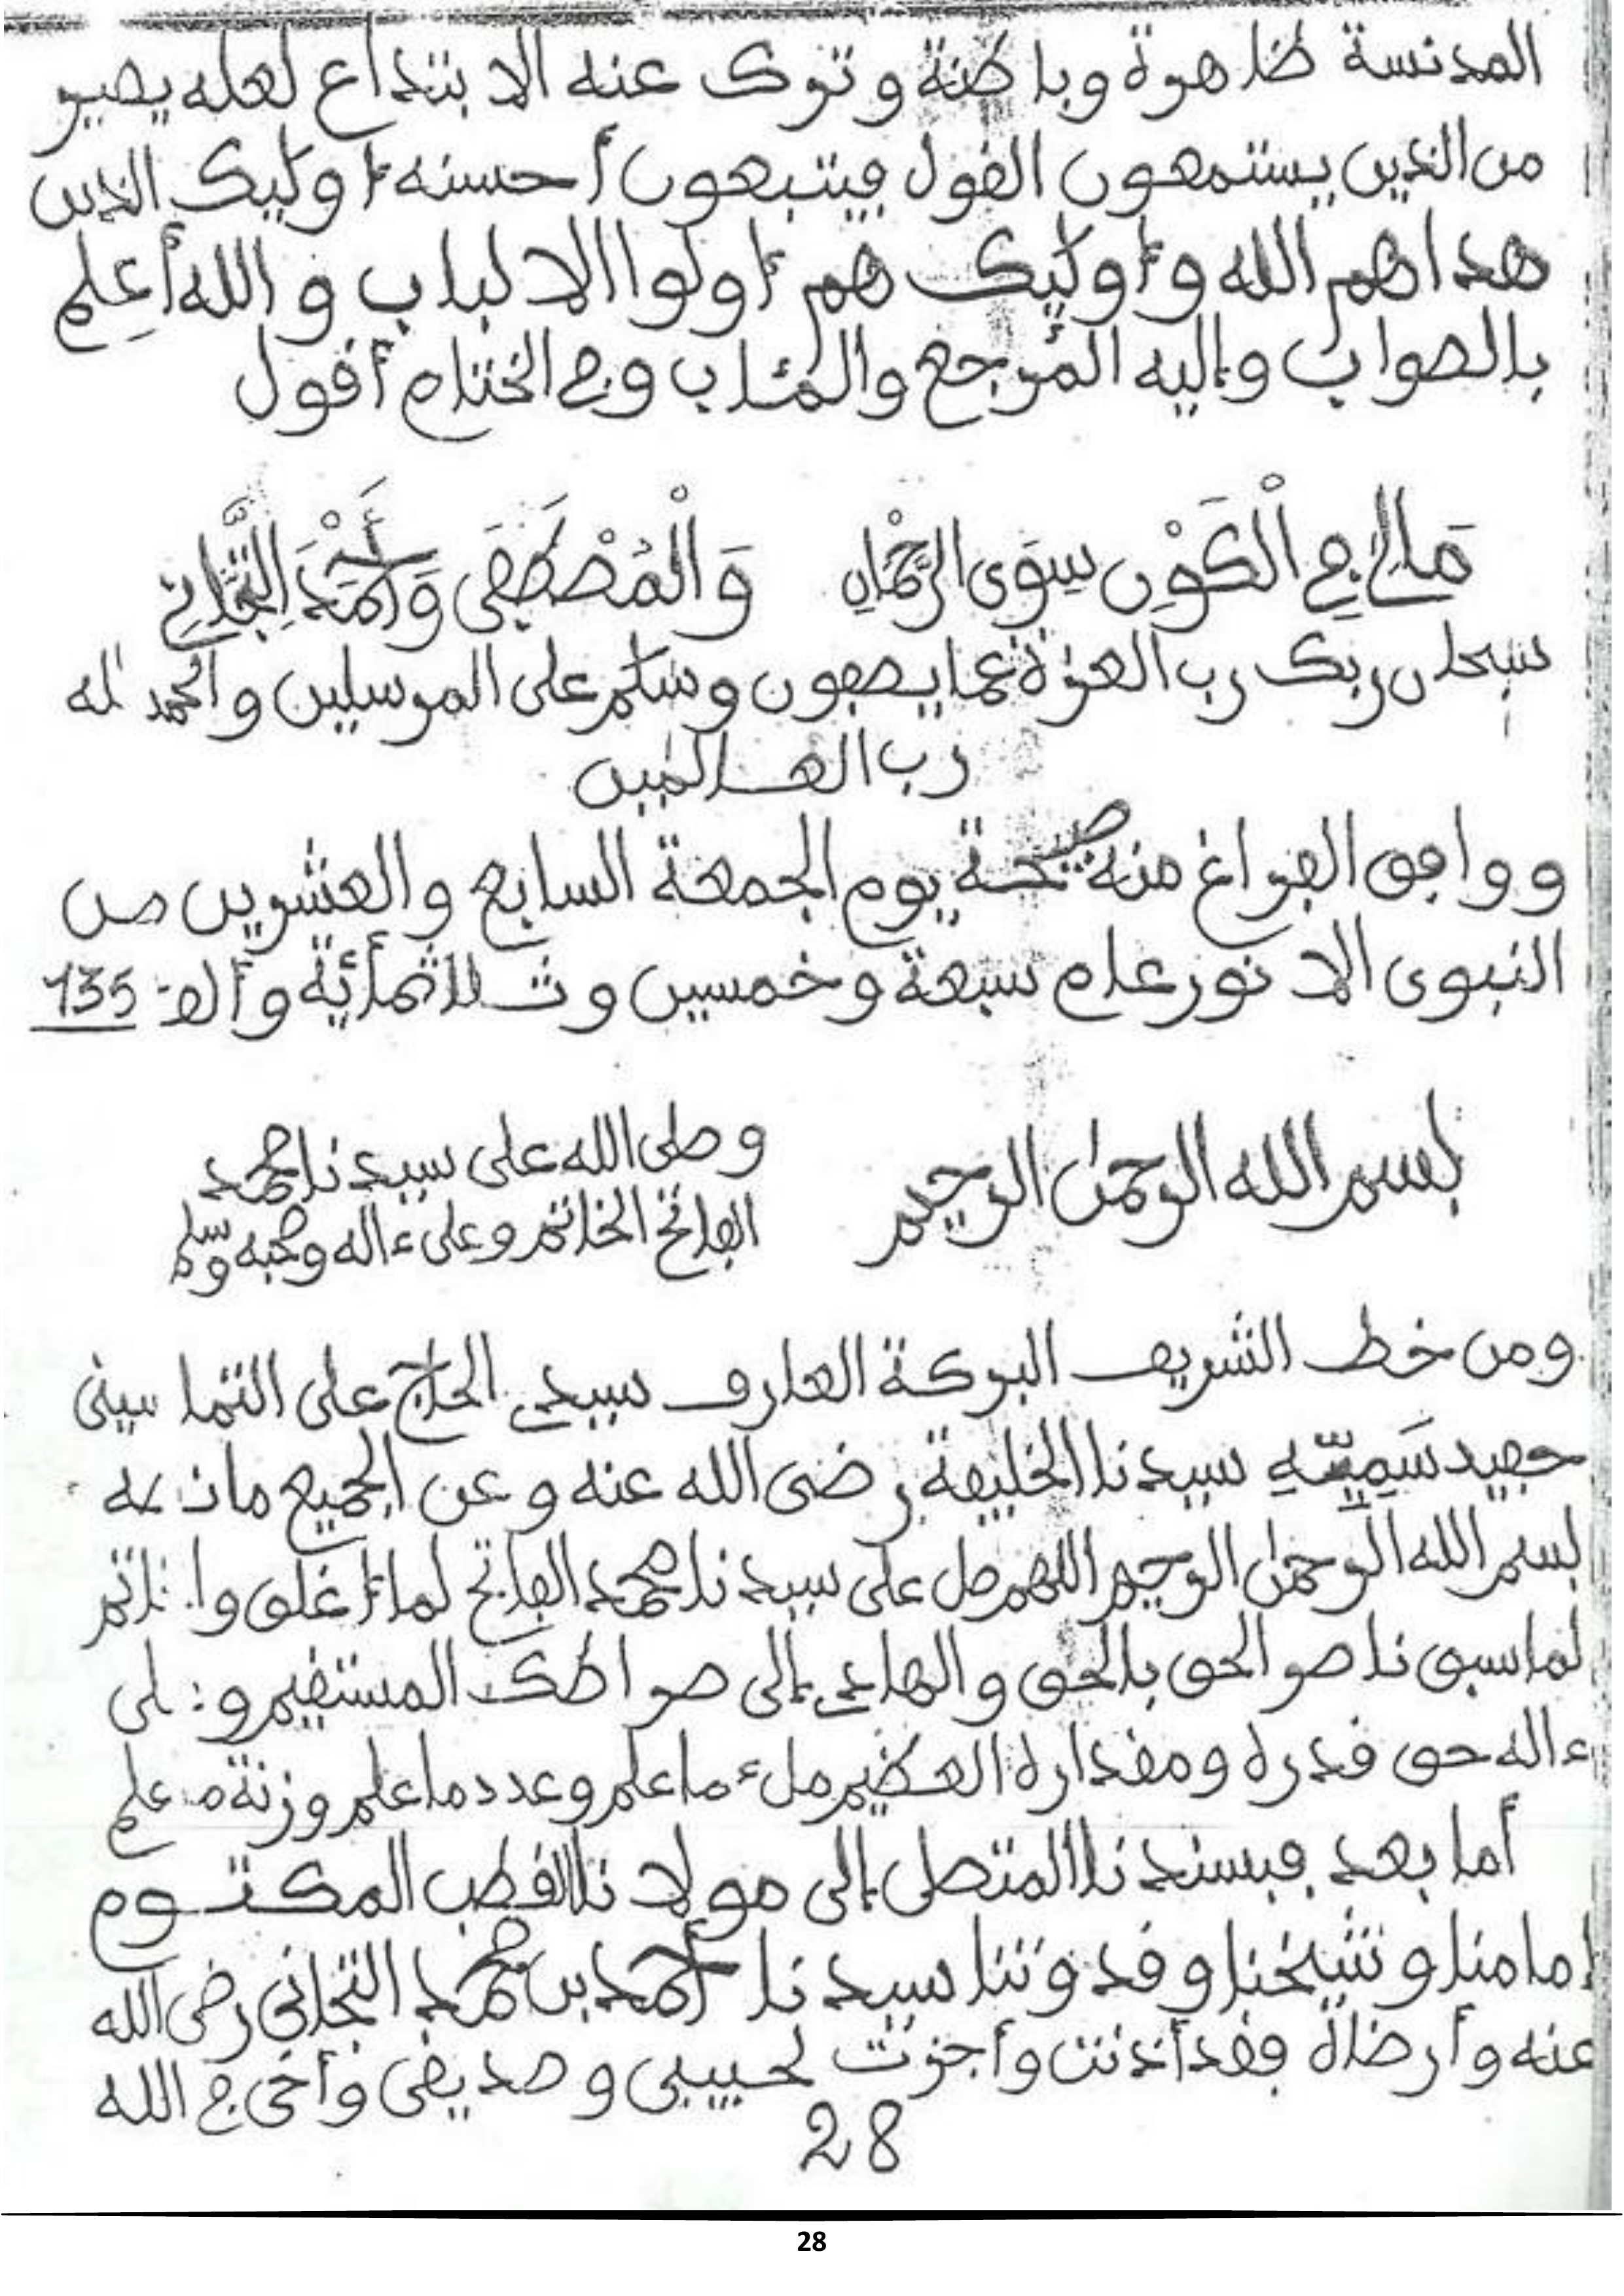 المدنسة ظاهرة وباطنة وترك عنه الابتداع لعله يصير
من الذين يستمعون القول فيتبعون أحسنه أوليك الذين
هداهم الله وأوليك هم أولوا الالباب والله أعلم
بالصواب وإليه المرجع والمئاب وفي الختام أقول
مَالِي فِي الْكَوْنِ سِوَى الرَّحْمَانِ وَالْمُصْطَفَى وَأَحْمَدَ التِّجَانِي
سبحان ربك رب العزة عما يصفون وسلم على المرسلين والحمد لله
رب العالمين
ووافق الفراغ منه صبيحة يوم الجمعة السابع والعشرين من
النبوى الانور عام سبعة وخمسين وثلاثمائية وألف 135
بسم الله الرحمن الرحيم
وصلى الله على سيدنا محمد
الفاتح الخاتم وعلى ءاله وصحبه وسلم
ومن خط الشريف البركة العارف سيدي الحاج على التماسينى
حفيد سَمِيِّهِ سيدنا الخليفة رضى الله عنه وعن الجميع ما نصه
بسم الله الرحمن الرحيم اللهم صل على سيدنا محمد الفاتح لما أغلق والخاتم
لما سبق ناصر الحق بالحق والهادي إلى صراطك المستقيم وعلى
ءاله حق قدره ومقداره العظيم ملء ما علم وعدد ما علم وزنة ما علم
أما بعد فبسندنا المتصل إلى مولانا القطب المكتوم
إمامنا وشيخنا وقدوتنا سيدنا أحمد بن محمد التجانى رضى الله
عنه وأرضاه فقد أذنت وأجزت لحبيبى وصديقى وأخى في الله
28
28